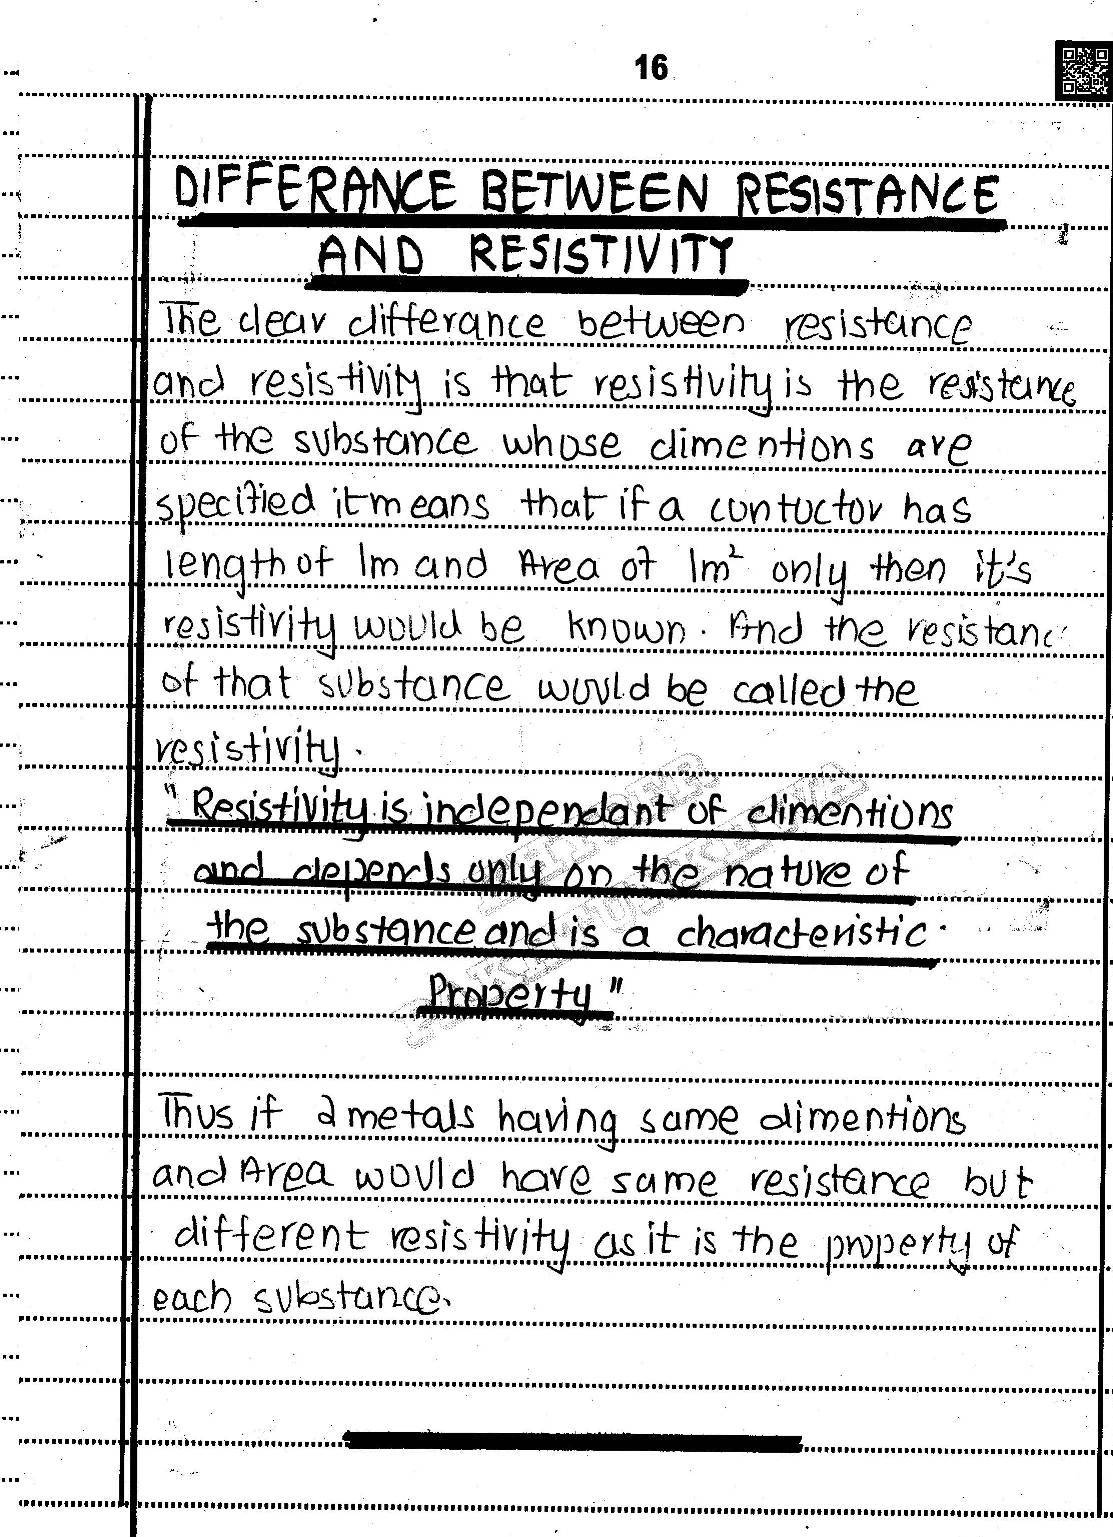 16
DIFFERANCE BETWEEN RESISTANCE
AND RESISTIVITY
The clear differance between resistance
and resistivity is that resistivity is the resistance
of the substance whose dimentions are
specified it means that if a contuctor has
length of 1m and Area of 1m² only then it's
resistivity would be known. And the resistanc
of that substance would be called the
resistivity.
"Resistivity is independant of dimentions
and depends only on the nature of
the substance and is a characteristic
Property"
Thus if 2 metals having same dimentions
and Area would have same resistance but
different resistivity as it is the property of
each substance.